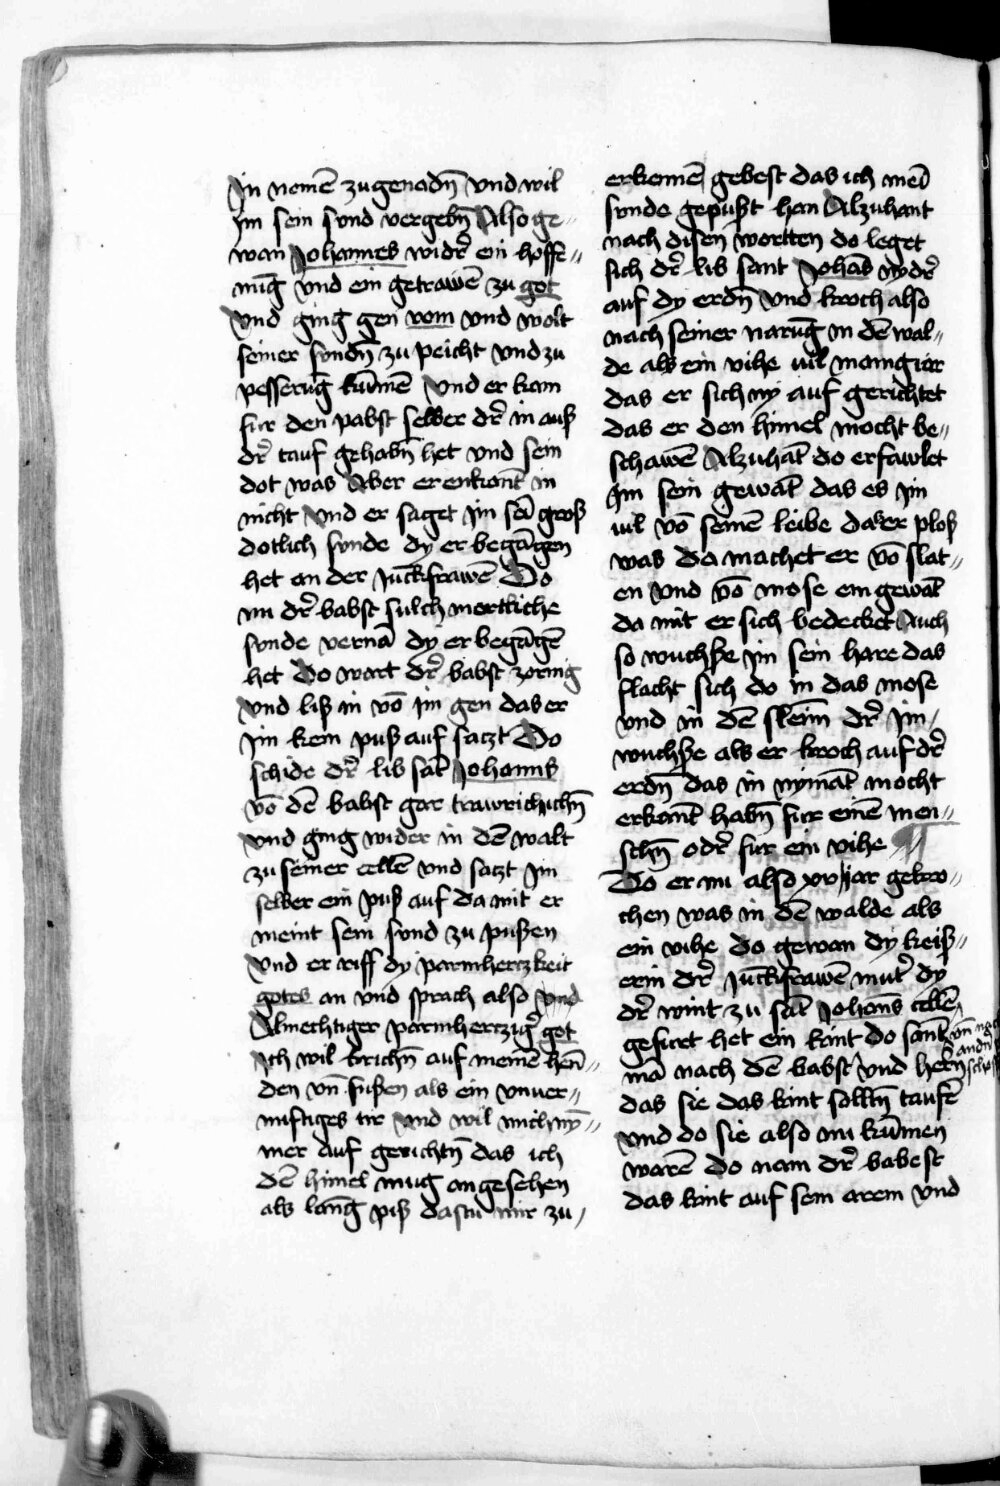 in nemē zu genadn̄ Vnd wil
im sein sund vergebn̄ Also ge„
wan Johannes widr̄ ein hoffe„
nūg Vnd ein getrawē zu got
Vnd ging gen rom vnd wolt
seiner sundn̄ zu peicht Vnd zu
pesserūg kūmē Vnd er kam
fur den pabst selber dr̄ in auß
dr̄ tauf gehabn̄ het vnd sein
dot was Aber er enkant in
nicht Vnd er saget im sēī groß
dotlich sunde dy er begāgen
het an der Jūckfrawē Do
nu dr̄ babst sulch mortliche
sunde vernā dy er begāgē
het Do wart dr̄ babst zornig
Vnd liß in vō im gen das er
im kein puß auf satzt Do
schide dr̄ lib sāt Johanns
vō dē babst gar trawrichichn̄
Vnd ging wider in dē walt
zu seiner cellē vnd satzt im
selber ein puß auf da mit er
meint sein sund zu pußen
Vnd er riff dy parmhertzkeit
gotes an vnd sprach also Vnd
Almechtiger parmhertzigr̄ got
Ich wil krichn̄ auf meinē hēn„
den vn̄ fußen als ein vnuer„
nuftiges tir Vnd wil mich ny„
mer auf gerichtn̄ das ich
dē himel mug an gesehen
als lāng piß dastu mir zu
erkennē gebest das ich meī
sunde gepußt han Alzuhant
nach disen wortten do leget
sich dr̄ lib sant Johās nydr̄
auf dy erdn̄ Vnd kroch also
nach seiner narūg in dē wal„
de als ein vihe vil manig iar
das er sich ny auf gerichtet
das er den himel mocht be„
schawē Alzuhāt do erfawlet
im sein gewāt das es im
vil vō seinē leibe das er ploß
was da machet er vō slat„
en Vnd vō mose ein gewāt
da mit er sich bedecket Auch
so wuchße im sein hare das
flacht sich do in das mose
vnd in dē sleim dr̄ im
wuchße als er kroch auf dr̄
erdn̄ das in nymāt mocht
erkant habn̄ fur einē men„
schn̄ odr̄ fur ein vihe ¶
Do er nu also xv iar gekro„
chen was in dē walde als
ein vihe do gewan dy keiß„
erin dr̄ Jūckfrawē mutr̄ dy
dr̄ wint zu sāt Johans cellē
gefurt het ein kint do sant
mā nach dē babst vnd hern̄
vn̄ nach
andn̄
das sie das kint solln̄ taufē
vnd do sie also nu kūmen
warē do nam dr̄ babest
das kint auf sein arem vnd